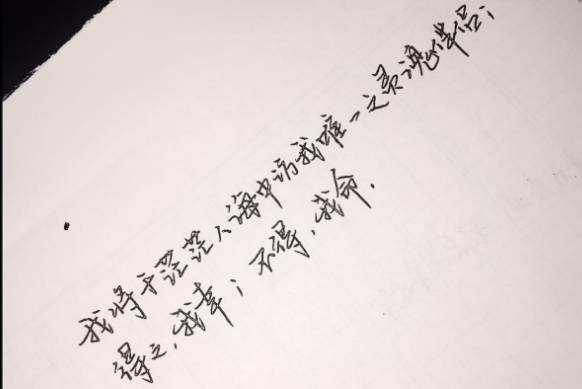 我将于茫茫人海中访我唯一之灵魂伴侣；
得之，我幸；不得，我命.